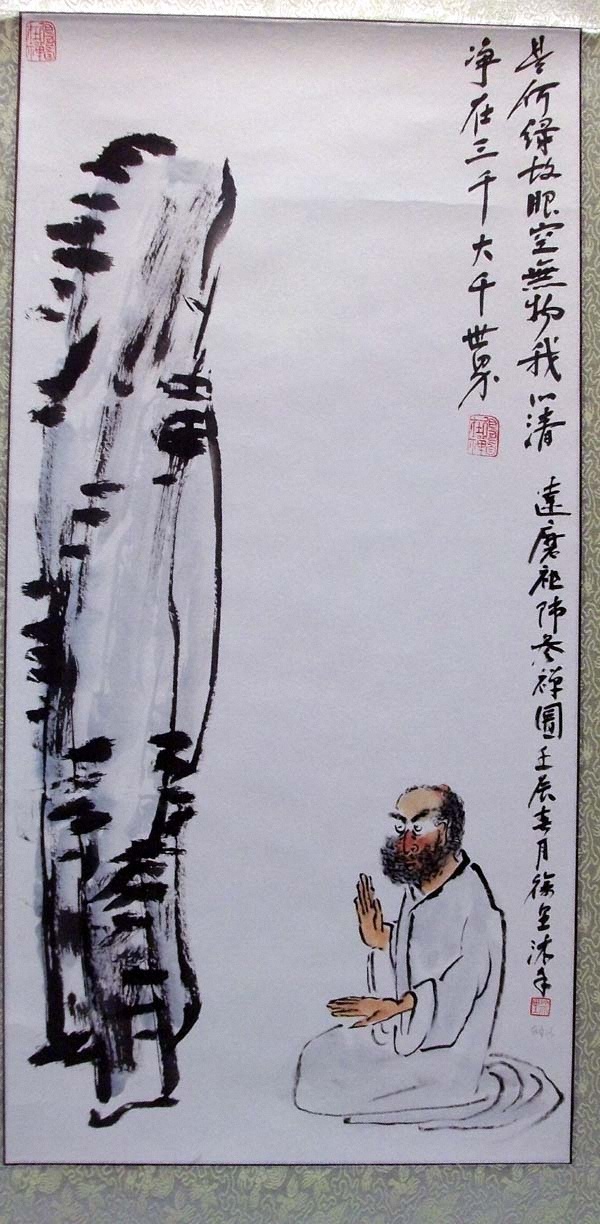 是何缘故眼空無物我心清
净在三千大千世界
達磨祖师参禪圖壬辰春月徐沐手